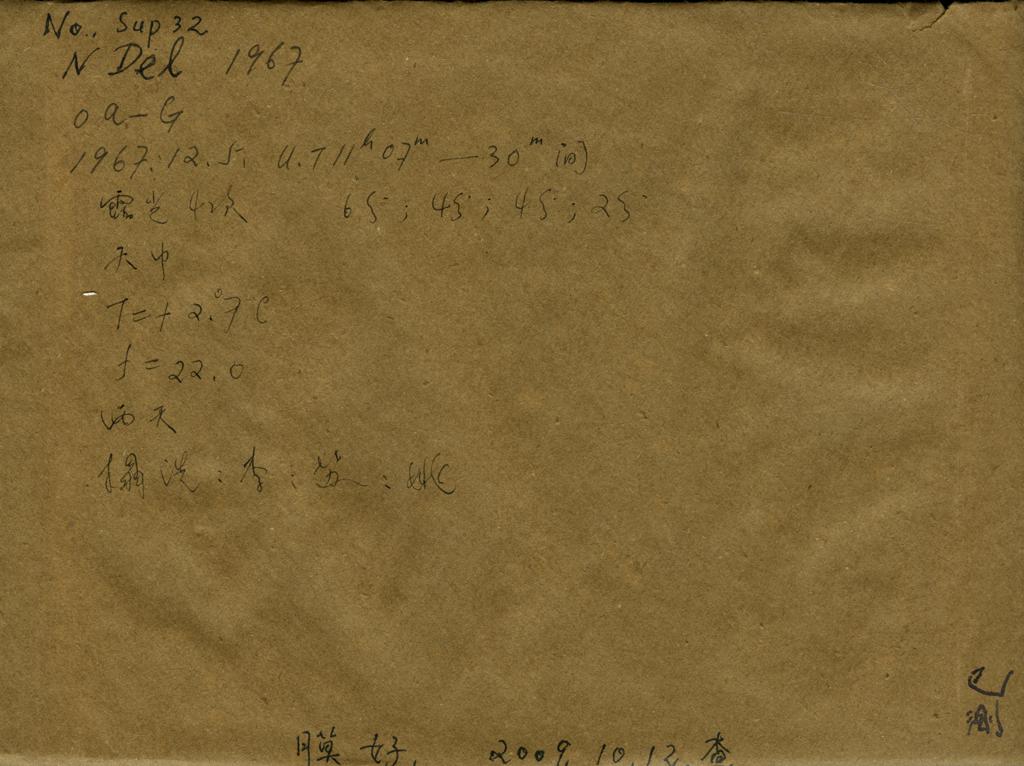 No. Sup 32
N Del 1967
Oa-G
1967.12.5. U.T 11ʰ07ᵐ—30ᵐ间
露光4次 6分; 4分; 4分; 2分
天中
T=+2.°7C
f=22.0
西天
摄洗:李:苏:姚
已测
膜好. 2009.10.12.查